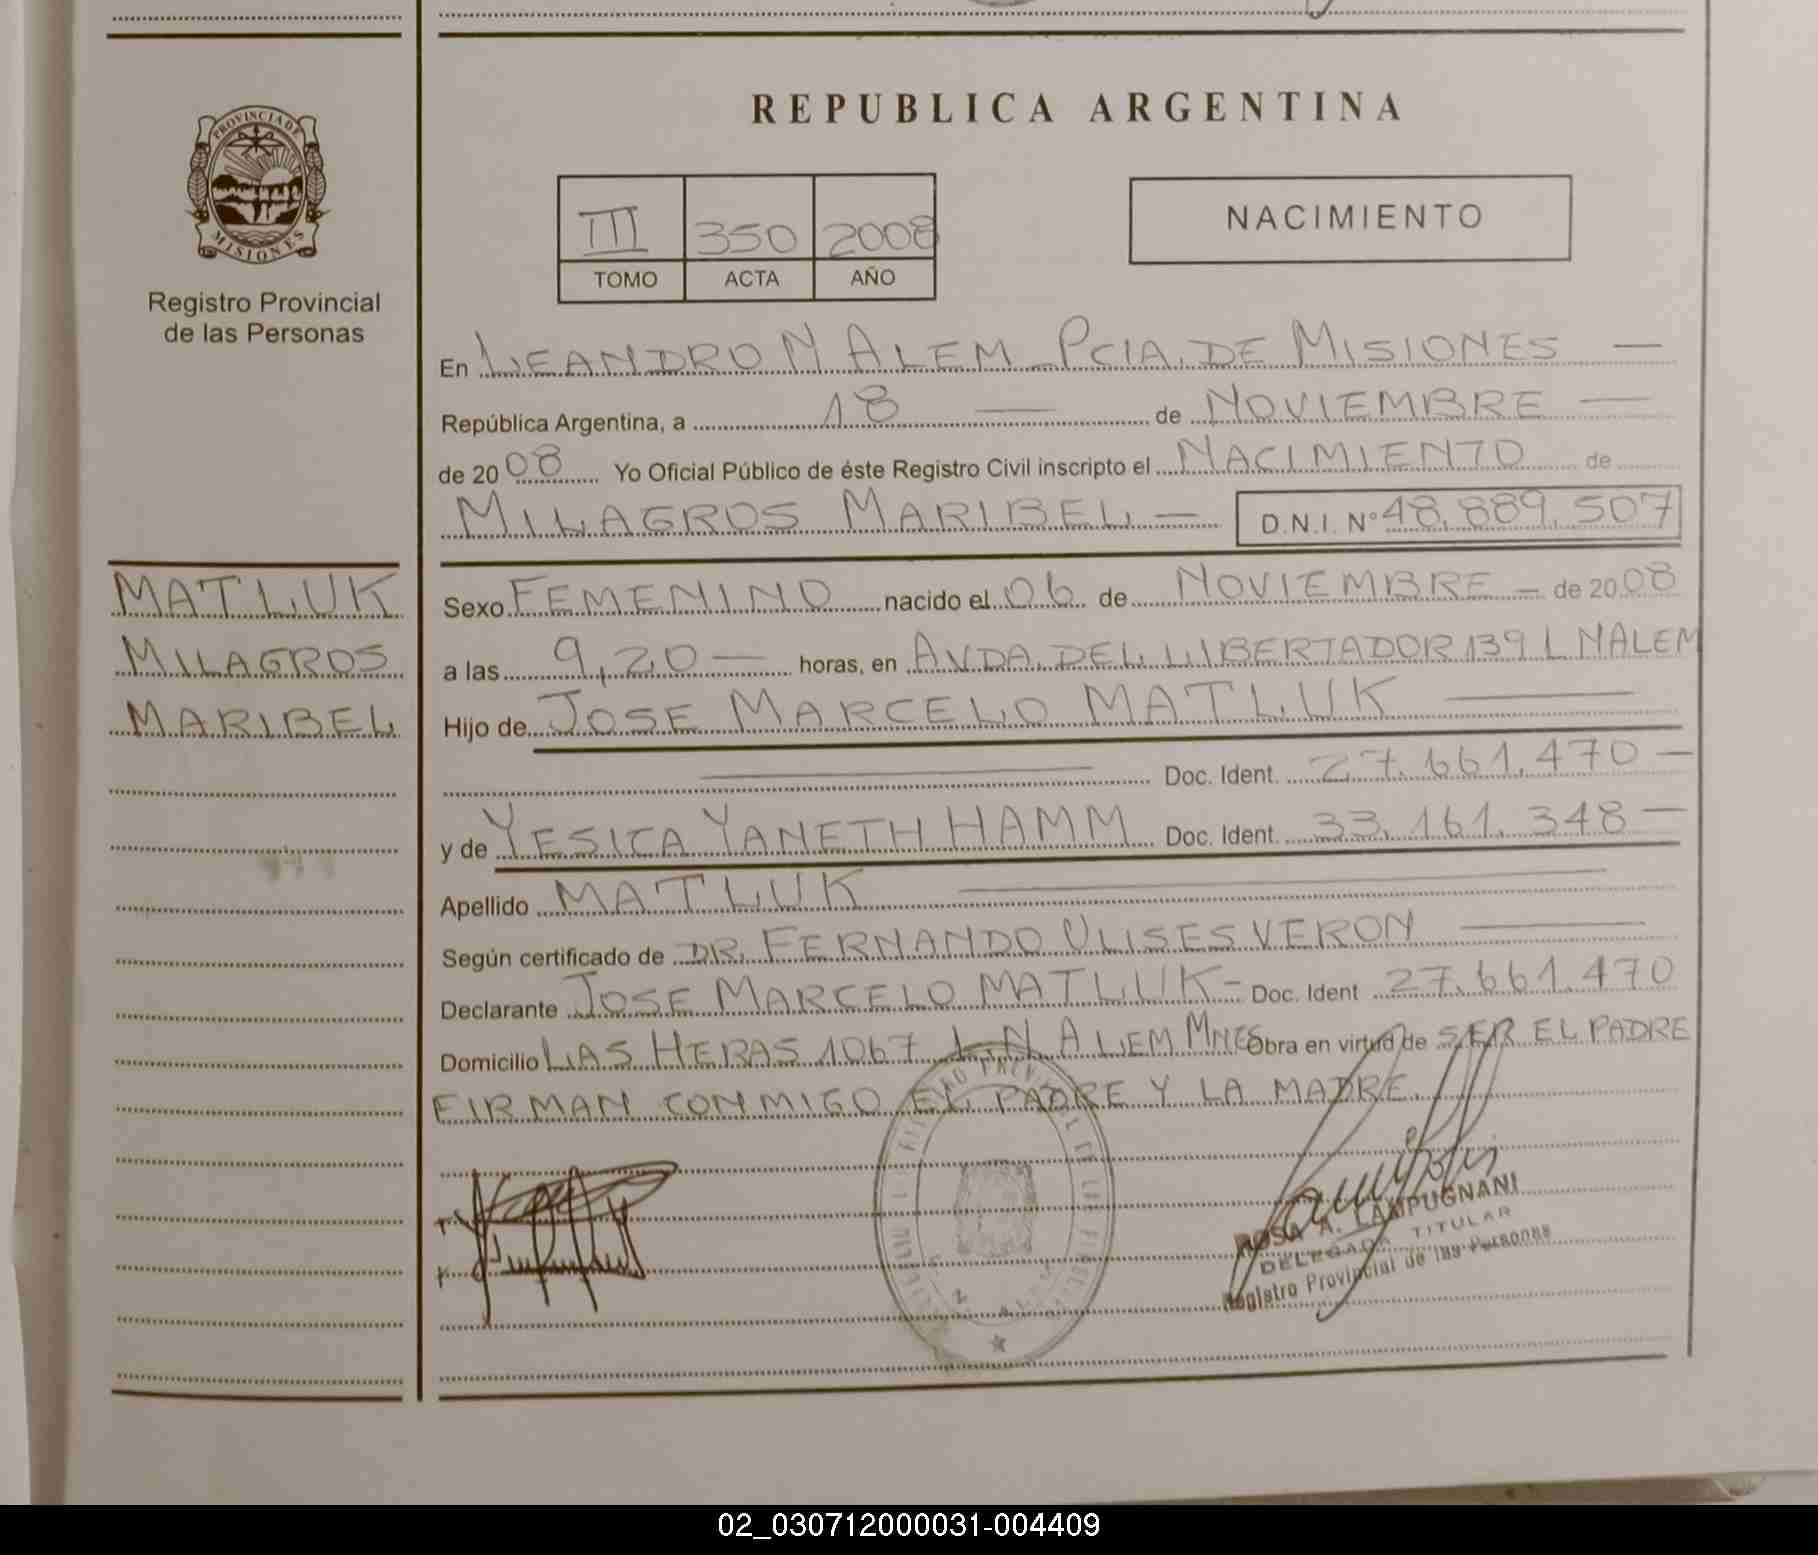 REPUBLICA ARGENTINA
PROVINCIA DE
MISIONES
Registro Provincial
de las Personas
III 350 2008
TOMO ACTA AÑO
NACIMIENTO
En LEANDRO N ALEM PCIA. DE MISIONES —
República Argentina, a 18 — de NOVIEMBRE —
de 2008 Yo Oficial Público de éste Registro Civil inscripto el NACIMIENTO de
MILAGROS MARIBEL — D.N.I. N° 48.889.507
MATLUK
MILAGROS
MARIBEL
Sexo FEMENINO nacido el 06 de NOVIEMBRE — de 2008
a las 9,20 — horas, en AVDA. DEL LIBERTADOR 139 L N ALEM
Hijo de JOSE MARCELO MATLUK —
— Doc. Ident. 27.661.470 —
y de YESICA YANETH HAMM Doc. Ident. 33.161.348 —
Apellido MATLUK —
Según certificado de DR. FERNANDO ULISES VERON —
Declarante JOSE MARCELO MATLUK - Doc. Ident 27.661.470
Domicilio LAS HERAS 1067 L.N. ALEM MNES Obra en virtud de SER EL PADRE
FIRMAN CONMIGO EL PADRE Y LA MADRE.
ROSA A. LAMPUGNANI
DELEGADA TITULAR
Registro Provincial de las Personas
02_030712000031-004409